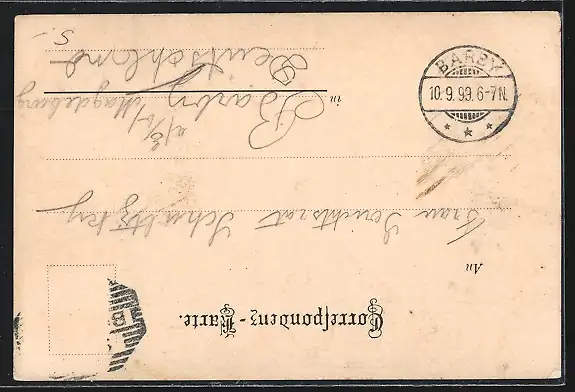 Correspondenz-Karte.
An
Frau Gerichtsrat
in Barby
a/E b/ Magdeburg
Deutschland
S.
BARBY
10. 9. 99. 6-7N.